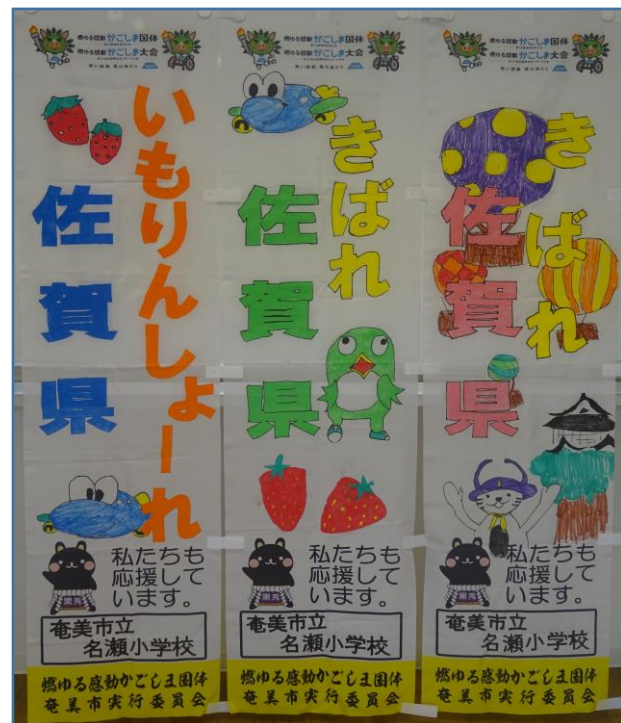 燃ゆる感動かごしま国体
燃ゆる感動かごしま大会
いもりんしょーれ
佐賀県
私たちも
応援して
います。
黒兎
奄美市立
名瀬小学校
燃ゆる感動かごしま国体
奄美市実行委員会
燃ゆる感動かごしま国体
燃ゆる感動かごしま大会
きばれ
佐賀県
私たちも
応援して
います。
黒兎
奄美市立
名瀬小学校
燃ゆる感動かごしま国体
奄美市実行委員会
燃ゆる感動かごしま国体
燃ゆる感動かごしま大会
きばれ
佐賀県
私たちも
応援して
います。
黒兎
奄美市立
名瀬小学校
燃ゆる感動かごしま国体
奄美市実行委員会